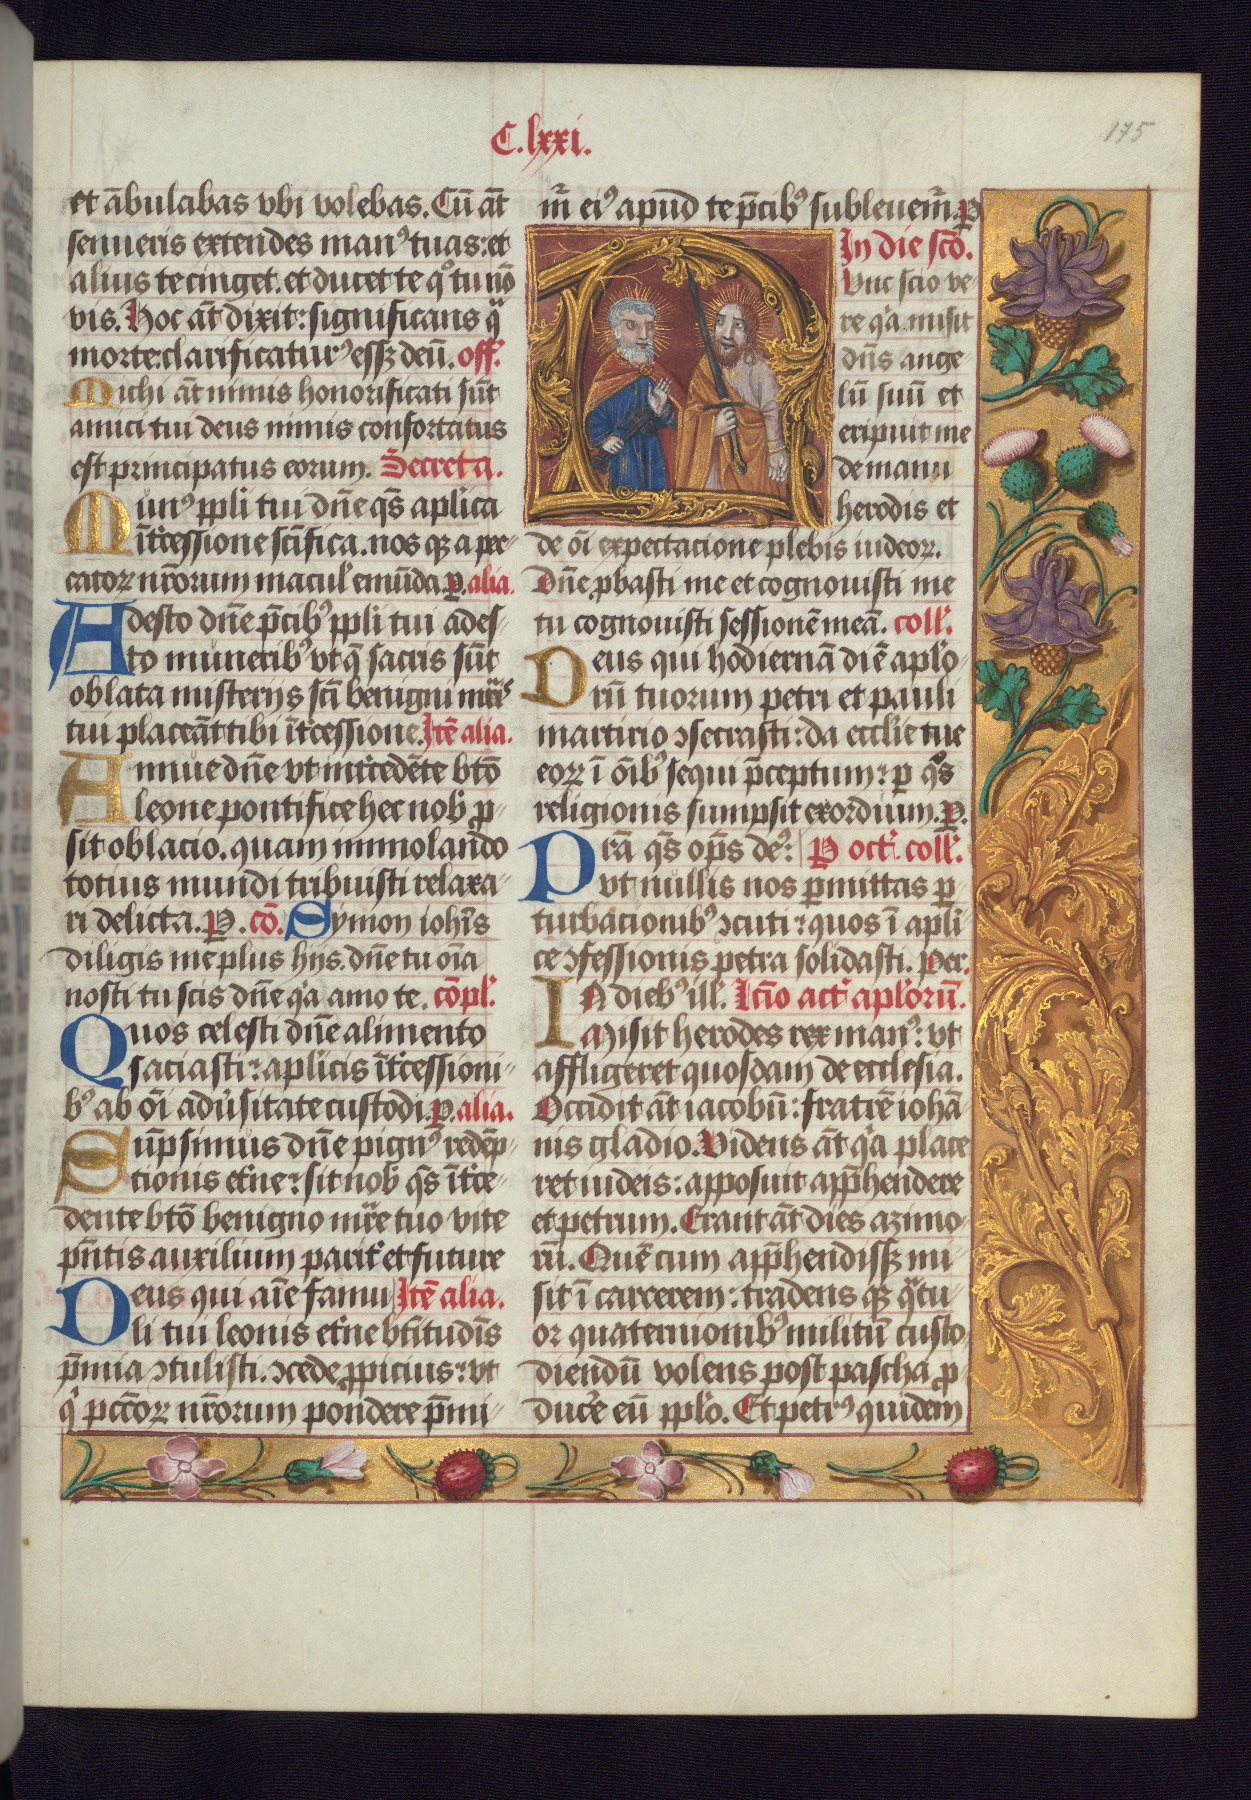 C.lxxi.
175
et ābulabas vbi volebas. Cū āt
senueris extendes man⁹ tuas: et
alius te cinget. et ducet te qͦ tu nō
vis. Hoc āt dixit: significans qͣ
morte clarificatur⁹ essꝫ deū. off.
Michi āt nimis honorificati sūt
amici tui deus nimis confortatus
est principatus eorum. Secreta.
Mun⁹ ppli tui dn̄e qs̄ aplica
īt͛cessione scīfica. nos qꝫ a pec-
catoꝝ nr̄orum macul͛ emūda. P. alia.
Adesto dn̄e p̄cib⁹ ppli tui ades-
to munerib⁹ vt q̄ sacris sūt
oblata misterijs scī benigni mr̄is
tui placeāt tibi īt͛cessione. Itē alia.
Annue dn̄e vt int͛cedēte btō
leone pontifice hec nob̄ ꝓ-
sit oblacio. quam immolando
totius mundi tribuisti relaxa-
ri delicta. P. cō. Symon ioh̄is
diligis me plus hijs. dn̄e tu oīa
nosti tu scis dn̄e qͥa amo te. cōpl͛.
Quos celesti dn̄e alimento
saciasti: aplicis īt͛cessioni-
b⁹ ab oī adu͛sitate custodi. P. alia.
Sūpsimus dn̄e pign⁹ redēp-
tionis et͛ne: sit nob̄ qs̄ īt͛ce-
dente btō benigno mr̄e tuo vite
pn̄tis auxilium parit͛ et future
Deus qui aīe famu Itē alia.
li tui leonis et͛ne bt̄itudīs
p̄mia ɔtulisti. ɔcede ꝓpicius: vt
qͥ pcc̄oꝝ nr̄orum pondere p̄mi-
m̄r ei⁹ apud te p̄cib⁹ subleuem̄r. P
In die scō.
Nunc scio ve-
re qͥa misit
dn̄s ange-
lū suū et
eripuit me
de manu
herodis et
de oī expectacione plebis iudeoꝝ.
Dn̄e ꝓbasti me et cognouisti me
tu cognouisti sessionē meā. coll͛.
Deus qui hodiernā diē aplo-
rū tuorum petri et pauli
martirio ɔsecrasti: da eccl͛ie tue
eoꝝ ī oīb⁹ sequi p̄ceptum: ꝑ qͦs
religionis sumpsit exordium. P.
Pra qs̄ op̄s de⁹: P oct͛. coll͛.
vt nullis nos ꝑmittas ꝑ-
turbacionib⁹ ɔcuti: quos ī apli-
cē ɔfessionis petra solidasti. Per.
In dieb⁹ ill͛. Lcīo act͛ aplorū.
Misit herodes rex man⁹: vt
affligeret quosdam de ecclesia.
Occidit āt iacobū: fratrē iohā
nis gladio. Videns āt qͥa place
ret iudeis: apposuit app̄hendere
et petrum. Erant āt dies azimo-
rū. Quē cum app̄hendissꝫ mi-
sit ī carcerem: tradens qꝫ qͣtu-
or quaternionib⁹ militū custo-
diendū volens post pascha ꝓ-
duc͛e eū pplo. Et petr⁹ quidem